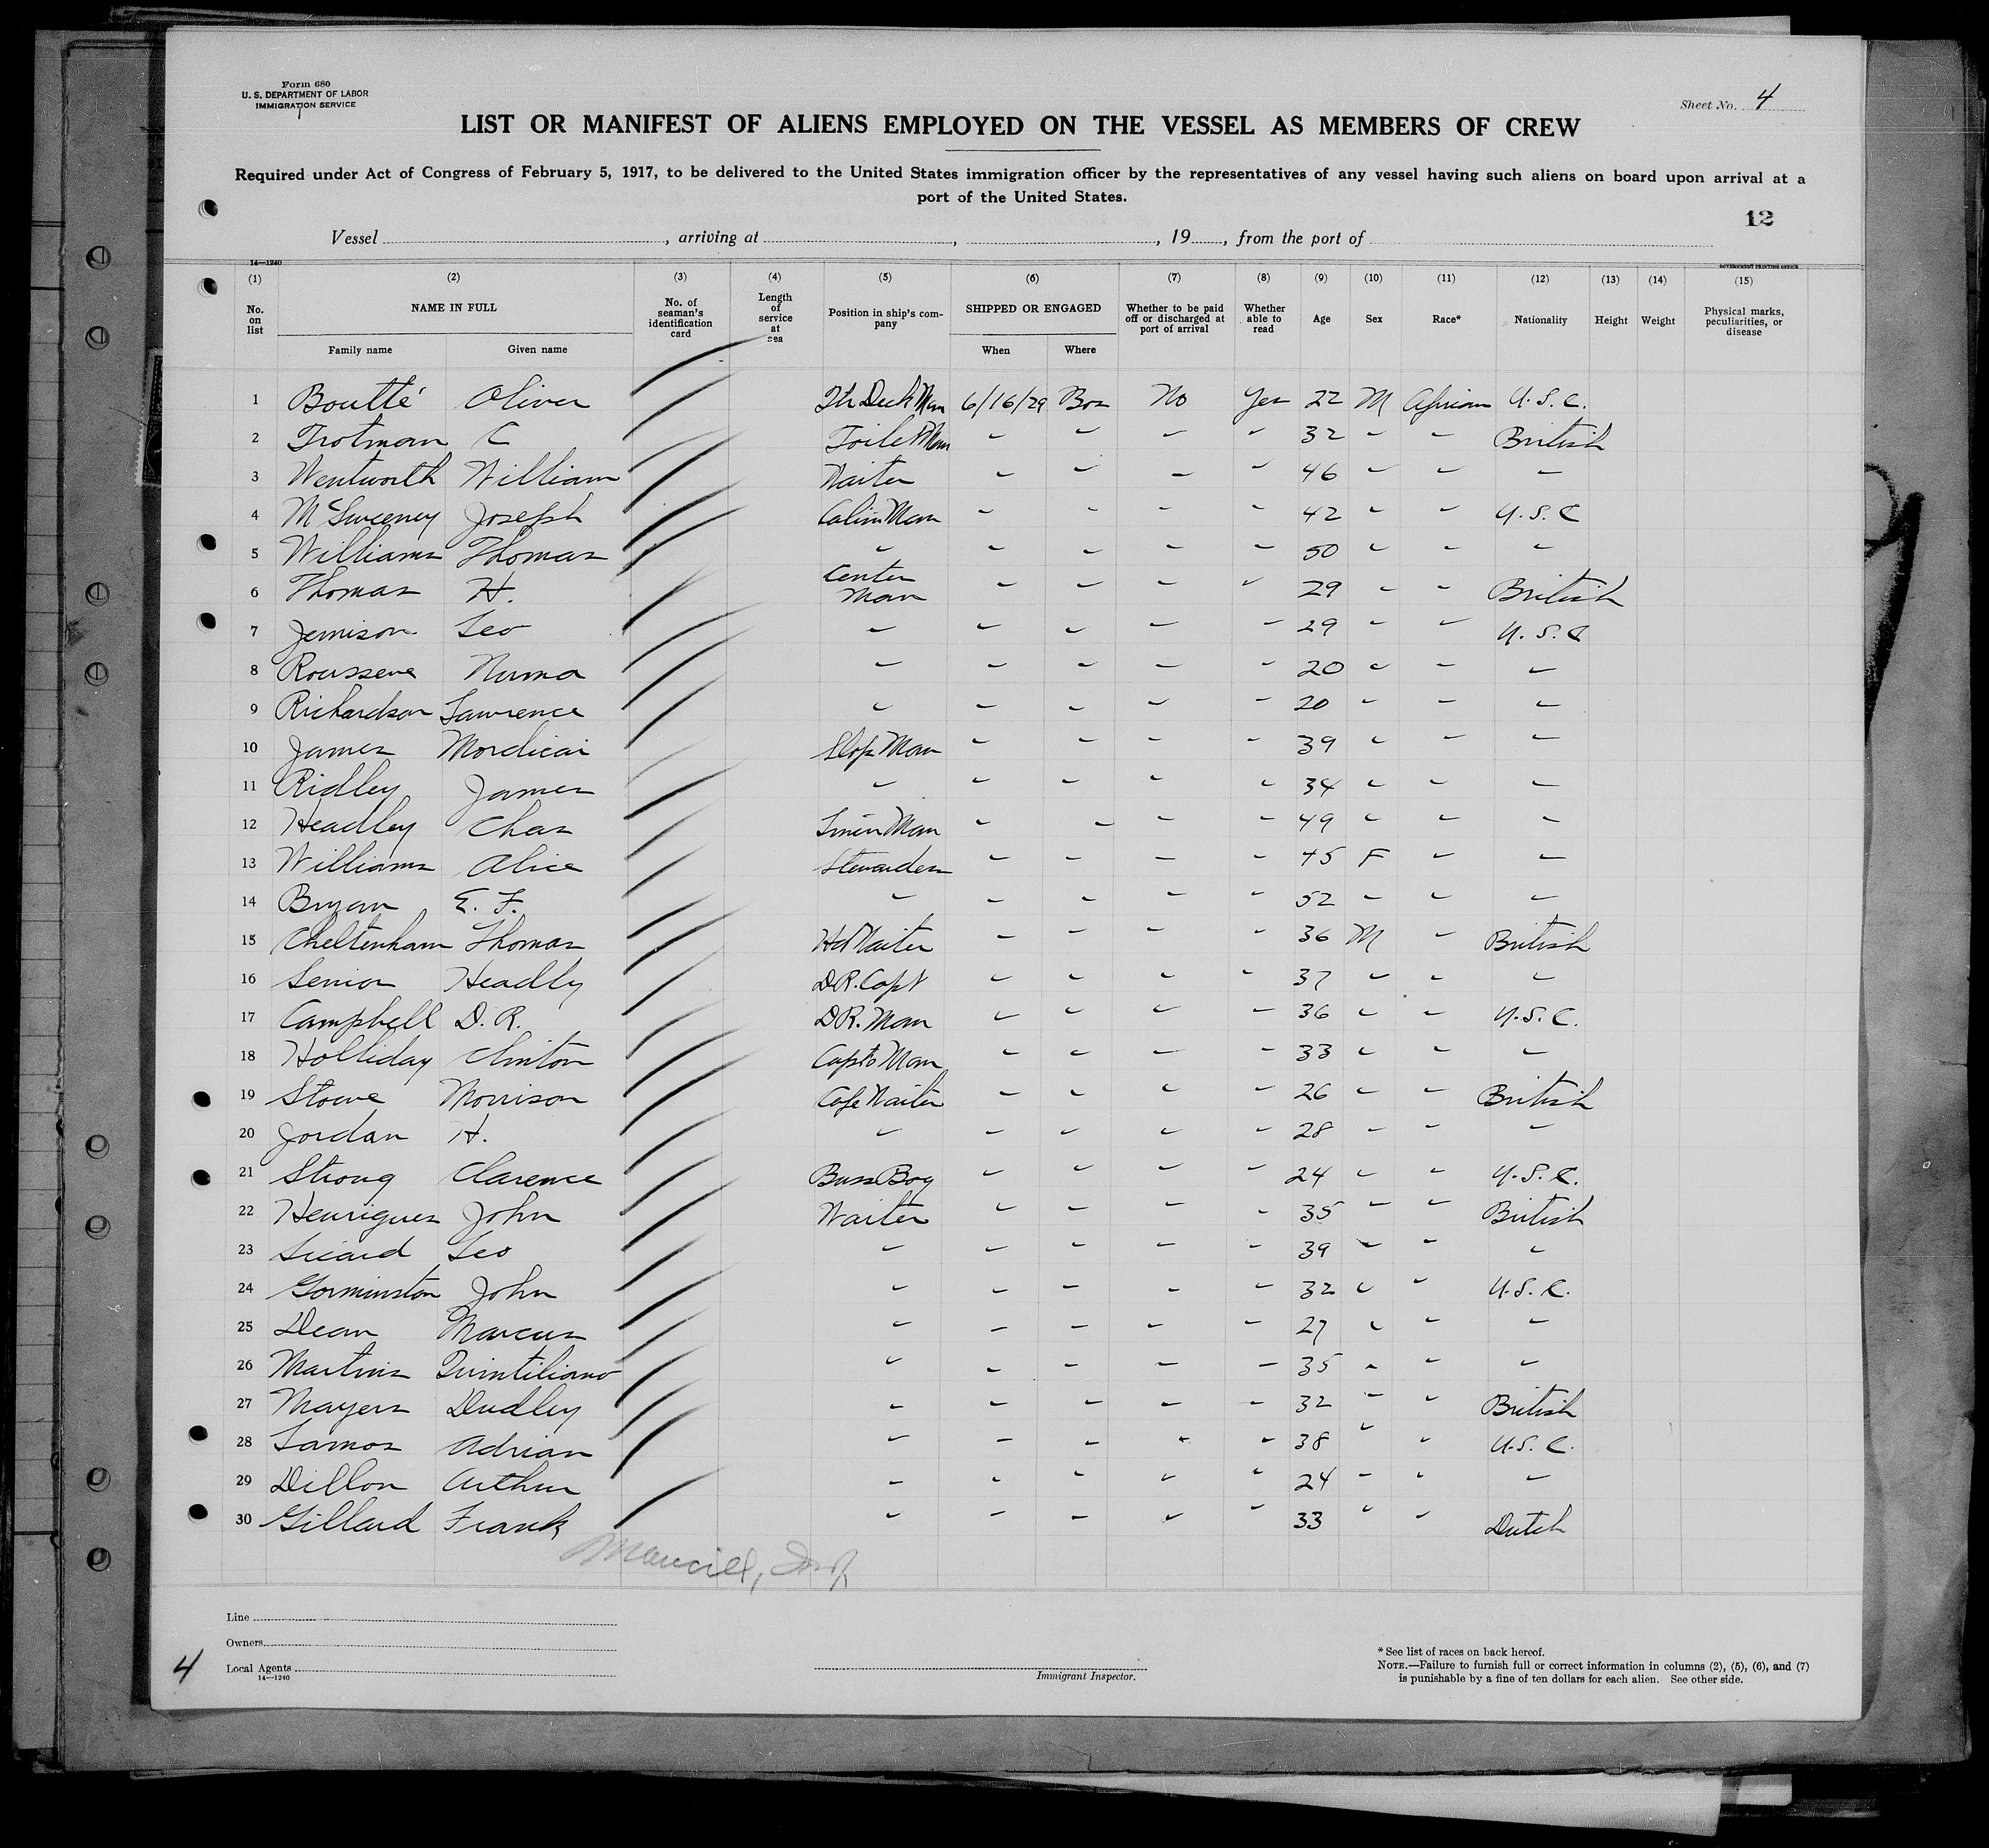 Form 680
U. S. DEPARTMENT OF LABOR
IMMIGRATION SERVICE
Sheet No. 4
LIST OR MANIFEST OF ALIENS EMPLOYED ON THE VESSEL AS MEMBERS OF CREW
Required under Act of Congress of February 5, 1917, to be delivered to the United States immigration officer by the representatives of any vessel having such aliens on board upon arrival at a
port of the United States.
12
Vessel , arriving at , , 19 , from the port of
14—1240 GOVERNMENT PRINTING OFFICE
(1) (2) (3) (4) (5) (6) (7) (8) (9) (10) (11) (12) (13) (14) (15)
No. on list NAME IN FULL Family name Given name No. of seaman's identification card Length of service at sea Position in ship's company SHIPPED OR ENGAGED When Where Whether to be paid off or discharged at port of arrival Whether able to read Age Sex Race* Nationality Height Weight Physical marks, peculiarities, or disease
1 Boutté Oliver Deck Man 6/16/29 Bos No Yes 22 M African U.S.C.
2 Trotman C Toilet Man - - - - 32 - - British
3 Wentworth William Waiter - - - - 46 - - -
4 McSweeney Joseph Cabin Man - - - - 42 - - U.S.C
5 Williams Thomas - - - - - 50 - - -
6 Thomas H. Center Man - - - - 29 - - British
7 Jemison Leo - - - - - 29 - - U.S.C
8 Rousseve Numa - - - - - 20 - - -
9 Richardson Lawrence - - - - - 20 - - -
10 James Mordicai Slop Man - - - - 39 - - -
11 Ridley James - - - - - 34 - - -
12 Headley Chas Linen Man - - - - 49 - - -
13 Williams Alice Stewardess - - - - 45 F - -
14 Bryan E. F. - - - - - 52 - - -
15 Cheltenham Thomas Hd Waiter - - - - 36 M - British
16 Senior Headly D.R. Capt - - - - 37 - - -
17 Campbell D. R. D.R. Man - - - - 36 - - U.S.C.
18 Holliday Clinton Capts Man - - - - 33 - - -
19 Stowe Morrison Cafe Waiter - - - - 26 - - British
20 Jordan H. - - - - - 28 - - -
21 Strong Clarence Buss Boy - - - - 24 - - U.S.C.
22 Henriques John Waiter - - - - 35 - - British
23 Sicard Leo - - - - - 39 - - -
24 Gorminston John - - - - - 32 - - U.S.C.
25 Dean Marcus - - - - - 27 - - -
26 Martins Quintiliano - - - - - 35 - - -
27 Mayers Dudley - - - - - 32 - - British
28 Lamos Adrian - - - - - 38 - - U.S.C.
29 Dillon Arthur - - - - - 24 - - -
30 Gillard Frank - - - - - 33 - - Dutch
Line
Owners
Local Agents
14—1240
4
Immigrant Inspector.
* See list of races on back hereof.
NOTE.—Failure to furnish full or correct information in columns (2), (5), (6), and (7)
is punishable by a fine of ten dollars for each alien. See other side.